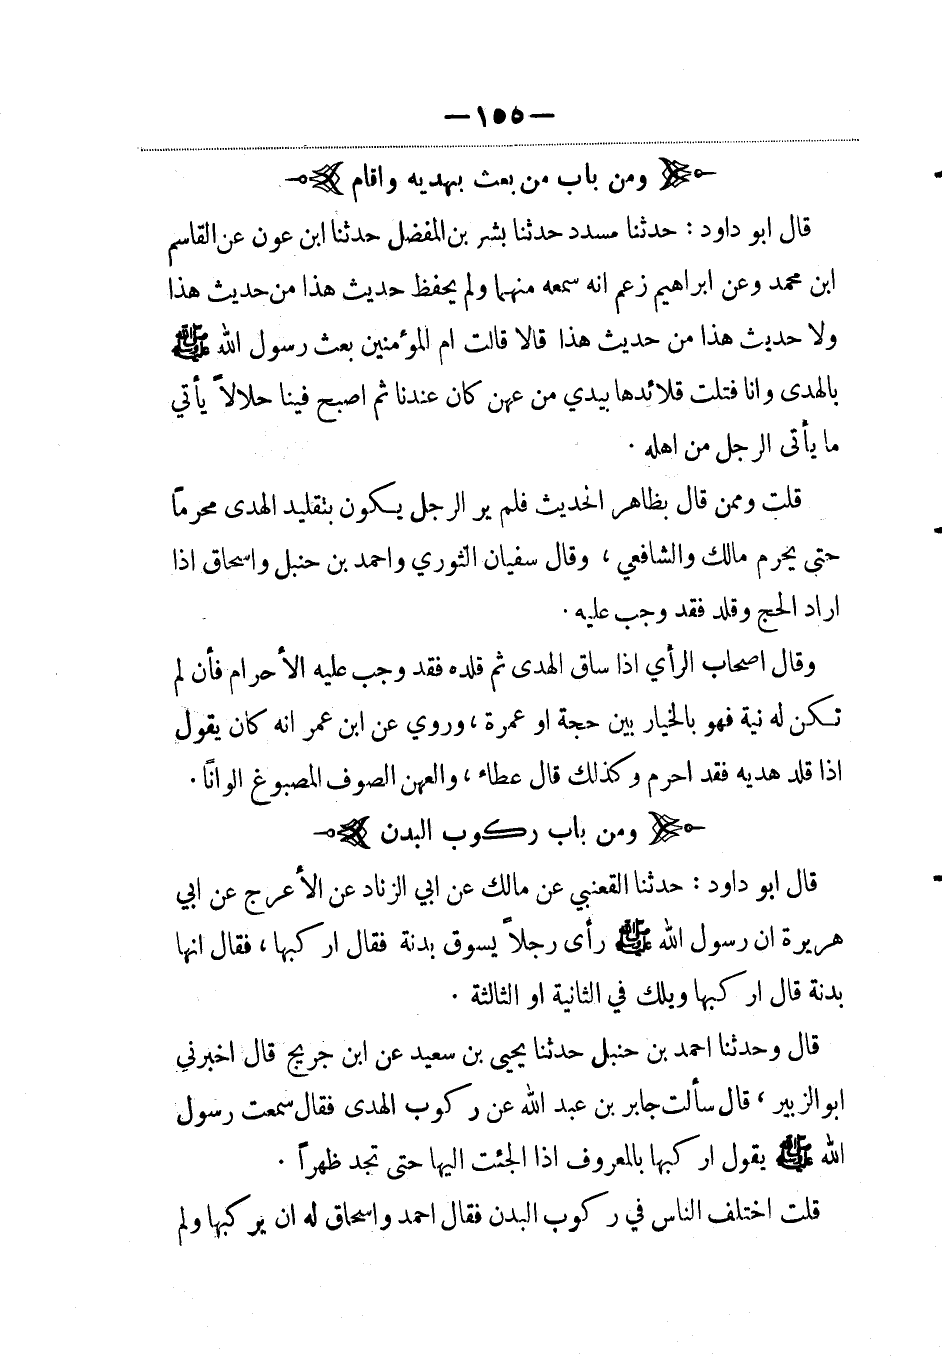 —١٥٥—
ومن باب من بعث بهديه واقام
قال ابو داود : حدثنا مسدد حدثنا بشر بن المفضل حدثنا ابن عون عن القاسم
ابن محمد وعن ابراهيم زعم انه سمعه منهما ولم يحفظ حديث هذا من حديث هذا
ولا حديث هذا من حديث هذا قالا قالت ام المؤمنين بعث رسول الله ﷺ
بالهدى وانا فتلت قلائدها بيدي من عهن كان عندنا ثم اصبح فينا حلالاً يأتي
ما يأتى الرجل من اهله .
قلت وممن قال بظاهر الحديث فلم ير الرجل يكون بتقليد الهدى محرماً
حتى يحرم مالك والشافعي ، وقال سفيان الثوري واحمد بن حنبل واسحاق اذا
اراد الحج وقلد فقد وجب عليه .
وقال اصحاب الرأي اذا ساق الهدى ثم قلده فقد وجب عليه الأحرام فأن لم
تكن له نية فهو بالخيار بين حجة او عمرة ، وروي عن ابن عمر انه كان يقول
اذا قلد هديه فقد احرم وكذلك قال عطاء ، والعهن الصوف المصبوغ الوانًا .
ومن باب ركوب البدن
قال ابو داود : حدثنا القعنبي عن مالك عن ابي الزناد عن الأعرج عن ابي
هريرة ان رسول الله ﷺ رأى رجلاً يسوق بدنة فقال اركبها ، فقال انها
بدنة قال اركبها ويلك في الثانية او الثالثة .
قال وحدثنا احمد بن حنبل حدثنا يحيى بن سعيد عن ابن جريج قال اخبرني
ابو الزبير ، قال سألت جابر بن عبد الله عن ركوب الهدى فقال سمعت رسول
الله ﷺ يقول اركبها بالمعروف اذا الجئت اليها حتى تجد ظهراً .
قلت اختلف الناس في ركوب البدن فقال احمد واسحاق له ان يركبها ولم